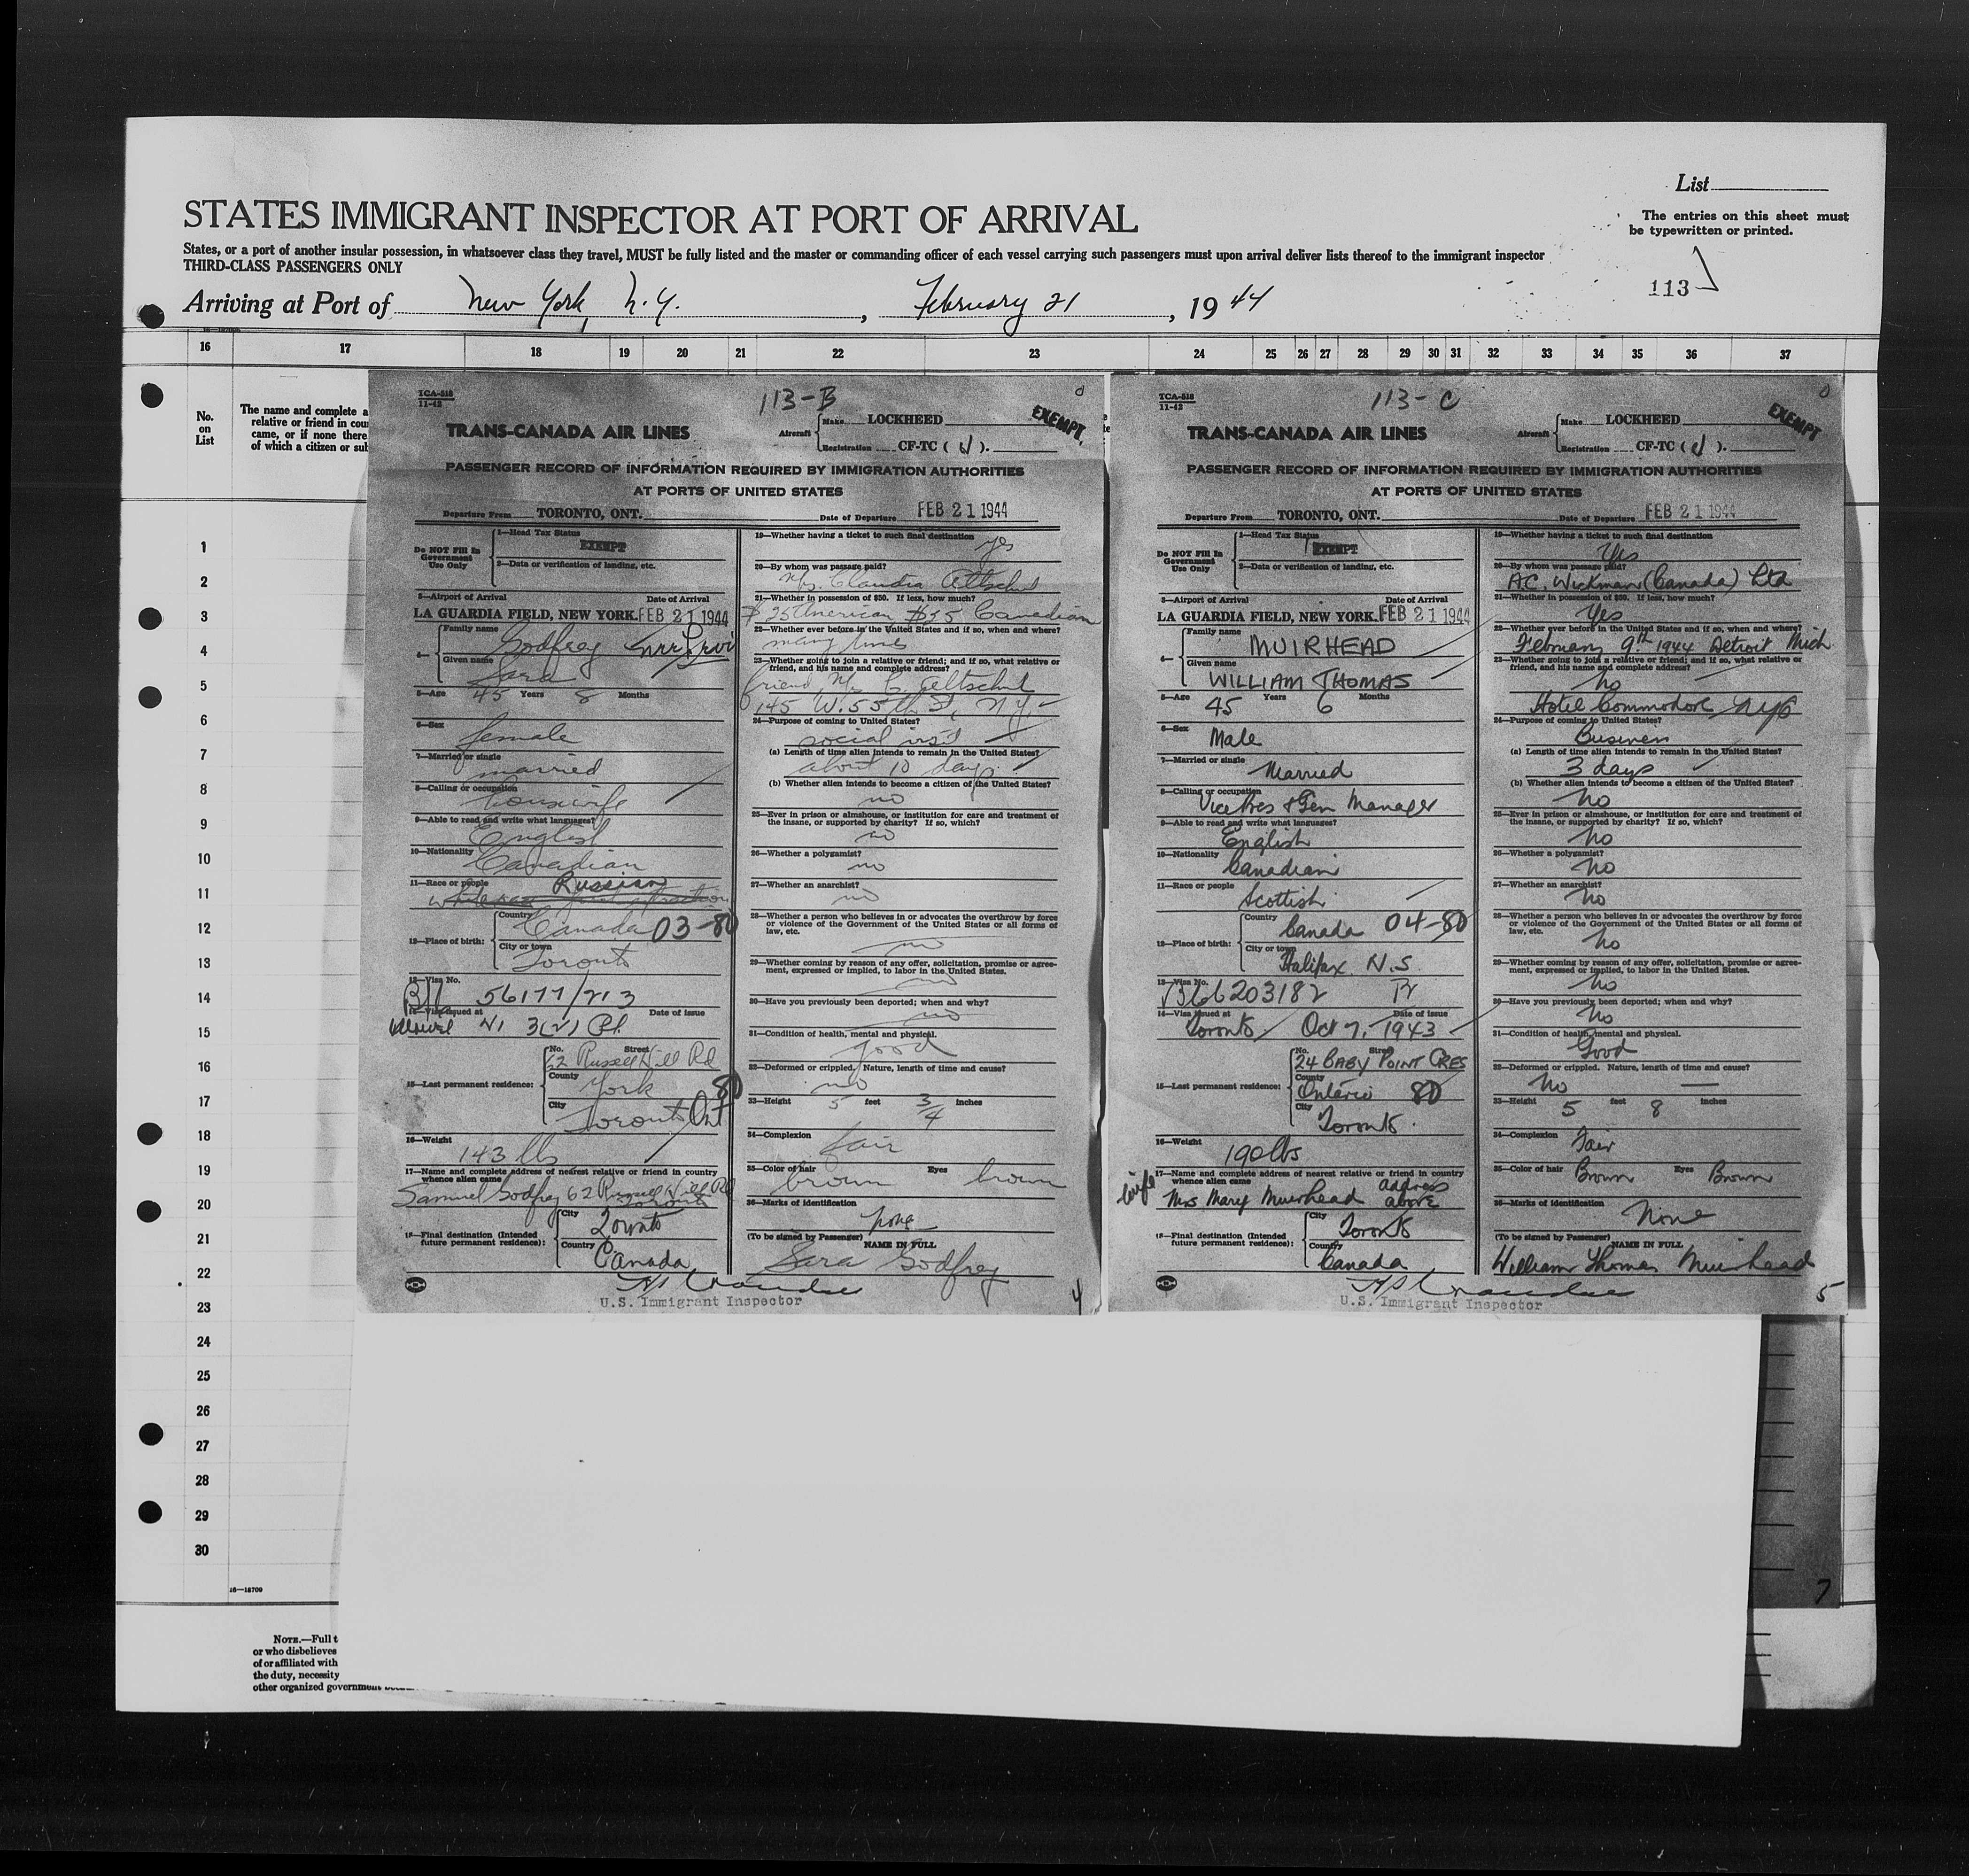 List
STATES IMMIGRANT INSPECTOR AT PORT OF ARRIVAL
The entries on this sheet must
be typewritten or printed.
States, or a port of another insular possession, in whatsoever class they travel, MUST be fully listed and the master or commanding officer of each vessel carrying such passengers must upon arrival deliver lists thereof to the immigrant inspector
THIRD-CLASS PASSENGERS ONLY
113
Arriving at Port of New York, N.Y., February 21, 1944
16 17 18 19 20 21 22 23 24 25 26 27 28 29 30 31 32 33 34 35 36 37
No.
on
List
The name and complete a
relative or friend in cou
came, or if none there
of which a citizen or sub
1
2
3
4
5
6
7
8
9
10
11
12
13
14
15
16
17
18
19
20
21
22
23
24
25
26
27
28
29
30
16—18709
NOTE.—Full t
or who disbelieves
of or affiliated with
the duty, necessity
other organized government
TCA-518
11-42
113-B
EXEMPT
TRANS-CANADA AIR LINES
Aircraft
Make LOCKHEED
Registration CF-TC ( ).
PASSENGER RECORD OF INFORMATION REQUIRED BY IMMIGRATION AUTHORITIES
AT PORTS OF UNITED STATES
Departure From TORONTO, ONT. Date of Departure FEB 21 1944
Do NOT Fill In
Government
Use Only
1—Head Tax Status
EXEMPT
2—Data or verification of landing, etc.
3—Airport of Arrival Date of Arrival
LA GUARDIA FIELD, NEW YORK. FEB 21 1944
4—
Family name Godfrey
Given name Sara
5—Age 45 Years 8 Months
6—Sex
female
7—Married or single
married
8—Calling or occupation
housewife
9—Able to read and write what languages?
English
10—Nationality
Canadian
11—Race or people
Russian
12—Place of birth:
Country
Canada 03-80
City or town
Toronto
13—Visa No.
56177/213
14—Visa issued at Date of issue
N1 3(2)
15—Last permanent residence:
No. Street
62 Russell Hill Rd
County
York 80
City
Toronto Ont
16—Weight
143 lbs
17—Name and complete address of nearest relative or friend in country
whence alien came
Samuel Godfrey 62 Russell Hill Rd
Toronto
18—Final destination (Intended
future permanent residence):
City
Toronto
Country
Canada
19—Whether having a ticket to such final destination
yes
20—By whom was passage paid?
Claudia Altschul
21—Whether in possession of $50. If less, how much?
$25 American $35 Canadian
22—Whether ever before in the United States and if so, when and where?
many times
23—Whether going to join a relative or friend; and if so, what relative or
friend, and his name and complete address?
friend C. Altschul
145 W. 55th St, N.Y.
24—Purpose of coming to United States?
social visit
(a) Length of time alien intends to remain in the United States?
about 10 days
(b) Whether alien intends to become a citizen of the United States?
no
25—Ever in prison or almshouse, or institution for care and treatment of
the insane, or supported by charity? If so, which?
no
26—Whether a polygamist?
no
27—Whether an anarchist?
no
28—Whether a person who believes in or advocates the overthrow by force
or violence of the Government of the United States or all forms of
law, etc.
no
29—Whether coming by reason of any offer, solicitation, promise or agree-
ment, expressed or implied, to labor in the United States.
no
30—Have you previously been deported; when and why?
no
31—Condition of health, mental and physical.
good
32—Deformed or crippled. Nature, length of time and cause?
no
33—Height 5 feet 3/4 inches
34—Complexion
fair
35—Color of hair brown Eyes brown
36—Marks of identification
none
(To be signed by Passenger) NAME IN FULL
Sara Godfrey
U.S. Immigrant Inspector
4
TCA-518
11-42
113-C
EXEMPT
TRANS-CANADA AIR LINES
Aircraft
Make LOCKHEED
Registration CF-TC ( ).
PASSENGER RECORD OF INFORMATION REQUIRED BY IMMIGRATION AUTHORITIES
AT PORTS OF UNITED STATES
Departure From TORONTO, ONT. Date of Departure FEB 21 1944
Do NOT Fill In
Government
Use Only
1—Head Tax Status
EXEMPT
2—Data or verification of landing, etc.
3—Airport of Arrival Date of Arrival
LA GUARDIA FIELD, NEW YORK. FEB 21 1944
4—
Family name
MUIRHEAD
Given name
WILLIAM THOMAS
5—Age 45 Years 6 Months
6—Sex
Male
7—Married or single
Married
8—Calling or occupation
Vice Pres & Gen Manager
9—Able to read and write what languages?
English
10—Nationality
Canadian
11—Race or people
Scottish
12—Place of birth:
Country
Canada 04-80
City or town
Halifax N.S.
13—Visa No.
14—Visa issued at Date of issue
Toronto Oct 7, 1943
15—Last permanent residence:
No. Street
24 BABY POINT CRES
County
Ontario 80
City
Toronto
16—Weight
190 lbs
17—Name and complete address of nearest relative or friend in country
whence alien came
wife Mrs Mary Muirhead address above
18—Final destination (Intended
future permanent residence):
City
Toronto
Country
Canada
19—Whether having a ticket to such final destination
Yes
20—By whom was passage paid?
A.C. Wickman (Canada) Ltd
21—Whether in possession of $50. If less, how much?
Yes
22—Whether ever before in the United States and if so, when and where?
February 9th 1944 Detroit Mich
23—Whether going to join a relative or friend; and if so, what relative or
friend, and his name and complete address?
no
Hotel Commodore NYC
24—Purpose of coming to United States?
Business
(a) Length of time alien intends to remain in the United States?
3 days
(b) Whether alien intends to become a citizen of the United States?
No
25—Ever in prison or almshouse, or institution for care and treatment of
the insane, or supported by charity? If so, which?
No
26—Whether a polygamist?
No
27—Whether an anarchist?
No
28—Whether a person who believes in or advocates the overthrow by force
or violence of the Government of the United States or all forms of
law, etc.
No
29—Whether coming by reason of any offer, solicitation, promise or agree-
ment, expressed or implied, to labor in the United States.
No
30—Have you previously been deported; when and why?
No
31—Condition of health, mental and physical.
Good
32—Deformed or crippled. Nature, length of time and cause?
No —
33—Height 5 feet 8 inches
34—Complexion
Fair
35—Color of hair Brown Eyes Brown
36—Marks of identification
None
(To be signed by Passenger) NAME IN FULL
William Thomas Muirhead
U.S. Immigrant Inspector
5
7